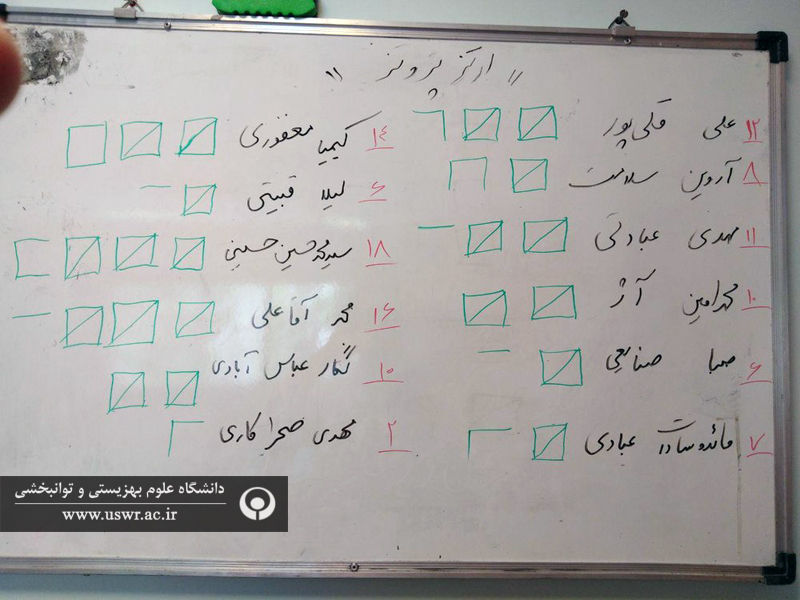 " ارتز پروتز "
۱۲ علی قلی پور
۸ آروین سلامت
۱۱ مهدی عبادتی
۱۰ محمدامین آژ
۶ صبا صنایعی
۷ مائده سادات عبادی
۱۴ کیمیا مغفوری
۶ لیلا قبیتی
۱۸ سیدمحمدحسین حسینی
۱۶ محمد آقاعلی
۱۰ نگار عباس آبادی
۲ مهدی صحراکاری
دانشگاه علوم بهزیستی و توانبخشی
www.uswr.ac.ir